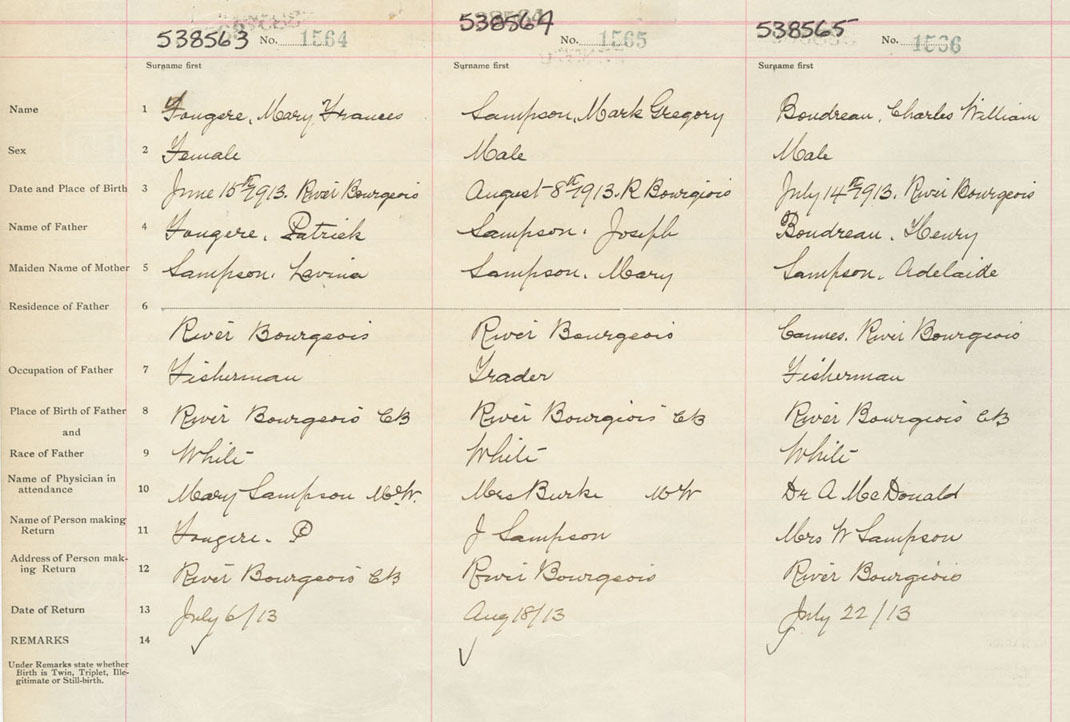 538563 No. 1564
538564 No. 1565
538565 No. 1566
Surname first
Surname first
Surname first
Name 1 Fougere, Mary Frances
Sampson, Mark Gregory
Boudreau, Charles William
Sex 2 Female
Male
Male
Date and Place of Birth 3 June 15th 1913. River Bourgeois
August 8th 1913. R Bourgeois
July 14th 1913. River Bourgeois
Name of Father 4 Fougere, Patrick
Sampson, Joseph
Boudreau, Henry
Maiden Name of Mother 5 Sampson, Levina
Sampson, Mary
Sampson, Adelaide
Residence of Father 6
River Bourgeois
River Bourgeois
Cannes. River Bourgeois
Occupation of Father 7 Fisherman
Trader
Fisherman
Place of Birth of Father 8 River Bourgeois CB
River Bourgeois CB
River Bourgeois CB
and
Race of Father 9 White
White
White
Name of Physician in
attendance 10 Mary Sampson M.W.
Mrs Burke MW
Dr A McDonald
Name of Person making
Return 11 Fougere. P
J Sampson
Mrs W Sampson
Address of Person mak-
ing Return 12 River Bourgeois CB
River Bourgeois
River Bourgeois
Date of Return 13 July 6/13
Aug 18/13
July 22/13
REMARKS 14
Under Remarks state whether
Birth is Twin, Triplet, Ille-
gitimate or Still-birth.